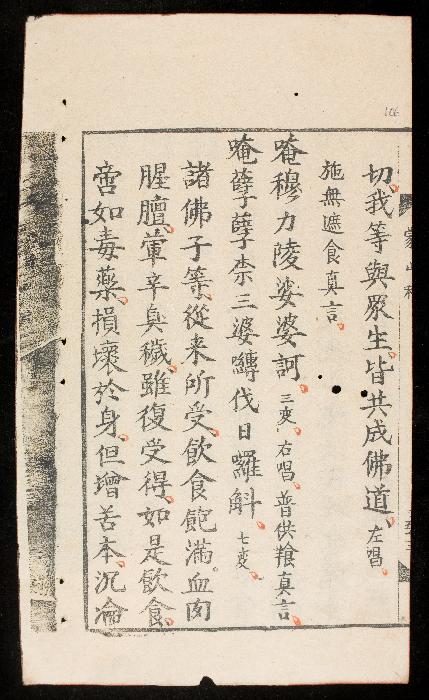 切我等與眾生皆共成佛道左唱
施無遮食真言
唵穆力陵娑婆訶三变右唱普供飱真言
唵孽孽柰三婆嚩伐日囉斛七变
諸佛子等從来所受飲食飽滿血肉
腥膻葷辛臭穢雖復受得如是飲食
啻如毒藥損壞於身但增苦本沉淪
106